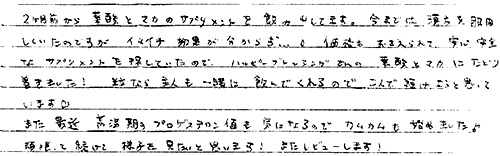 2ヶ月前から 葉酸とマカのサプリメントを飲み出してます。今までに漢方を服用
していたのですが イマイチ 効果が分からず… 価格もおさえられて、安心安全
なサプリメントを探していたので、ハッピーブレッシングさんの 葉酸とマカにたどり
着きました! 粒なら主人も一緒に飲んでくれるので 二人で続けようと思って
います♡
また最近 高温期のプロゲステロン値も気になるので カムカムも始めました♪
頑張って続けて様子を見たいと思います! またレビューします!